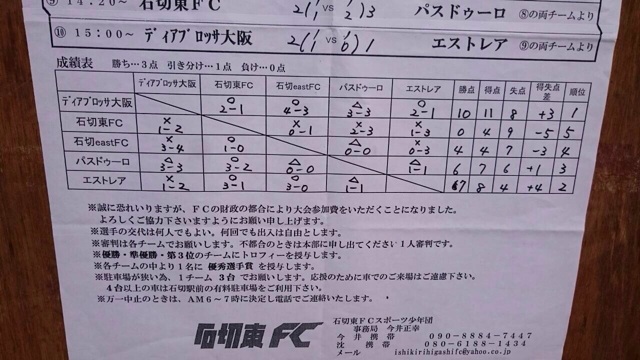 ⑨ 14:20~ 石切東FC 2(1/1 VS 1/2)3 パスドゥーロ ⑧の両チームより
⑩ 15:00~ ディアブロッサ大阪 2(1/1 VS 1/0)1 エストレア ⑨の両チームより
成績表 勝ち…3点 引き分け…1点 負け…0点
ディアブロッサ大阪 石切東FC 石切eastFC パスドゥーロ エストレア 勝点 得点 失点 得失点差 順位
ディアブロッサ大阪 ○ 2-1 ○ 4-3 △ 3-3 ○ 2-1 10 11 8 +3 1
石切東FC × 1-2 × 0-1 × 2-3 × 1-3 0 4 9 -5 5
石切eastFC × 3-4 ○ 1-0 △ 0-0 × 0-3 4 4 7 -3 4
パスドゥーロ △ 3-3 ○ 3-2 △ 0-0 △ 1-1 6 7 6 +1 3
エストレア × 1-2 ○ 3-1 ○ 3-0 △ 1-1 7 8 4 +4 2
※誠に恐れいりますが、FCの財政の都合により大会参加費をいただくことになりました。
よろしくご協力下さいますようにお願い申し上げます。
※選手の交代は何人でもよい。何回でも出入は自由とします。
※審判は各チームでお願いします。不都合のときは本部に申し出てください1人審判です。
※優勝・準優勝・第3位のチームにトロフィーを授与します。
※各チームの中より1名に優秀選手賞を授与します。
※駐車場が狭い為、1チーム3台でお願いします。応援のために車でのご来場はご遠慮下さい。
4台以上の車は石切駅前の有料駐車場をご利用下さい。
※万一中止のときは、AM6~7時に決定し電話でご連絡いたします。
石切東FC
石切東FCスポーツ少年団
事務局 今井正幸
今井携帯 090-8884-7447
沈携帯 080-6188-1434
メール ishikirihigashifc@yahoo.co.jp